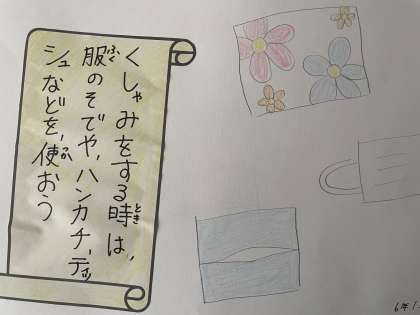 くしゃみをする時は、
服のそでや、ハンカチ、ティッ
シュなどを、使おう
とき
ふく
つか
6年1